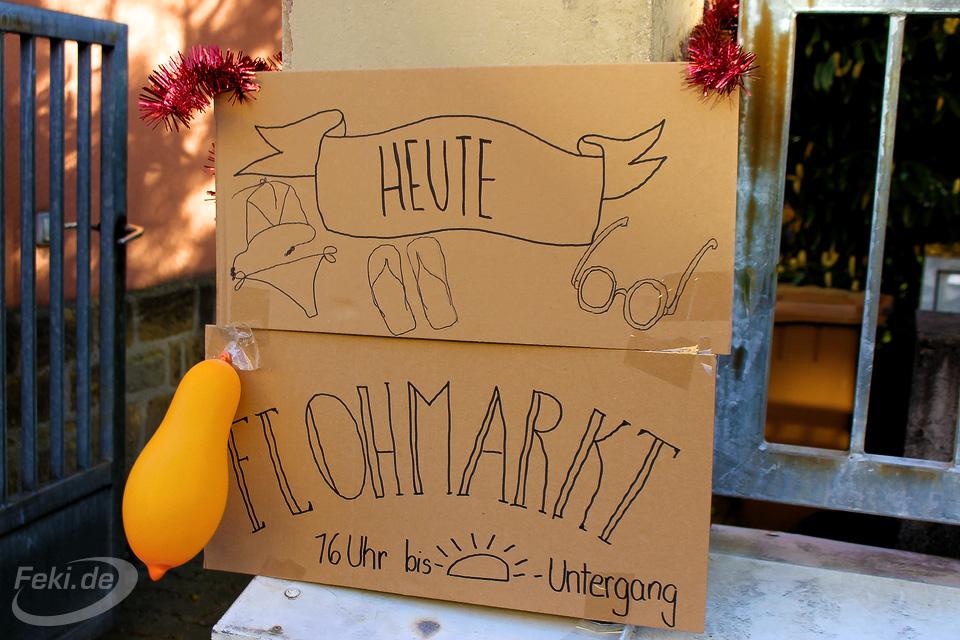 HEUTE
FLOHMARKT
16 Uhr bis Untergang
Feki.de